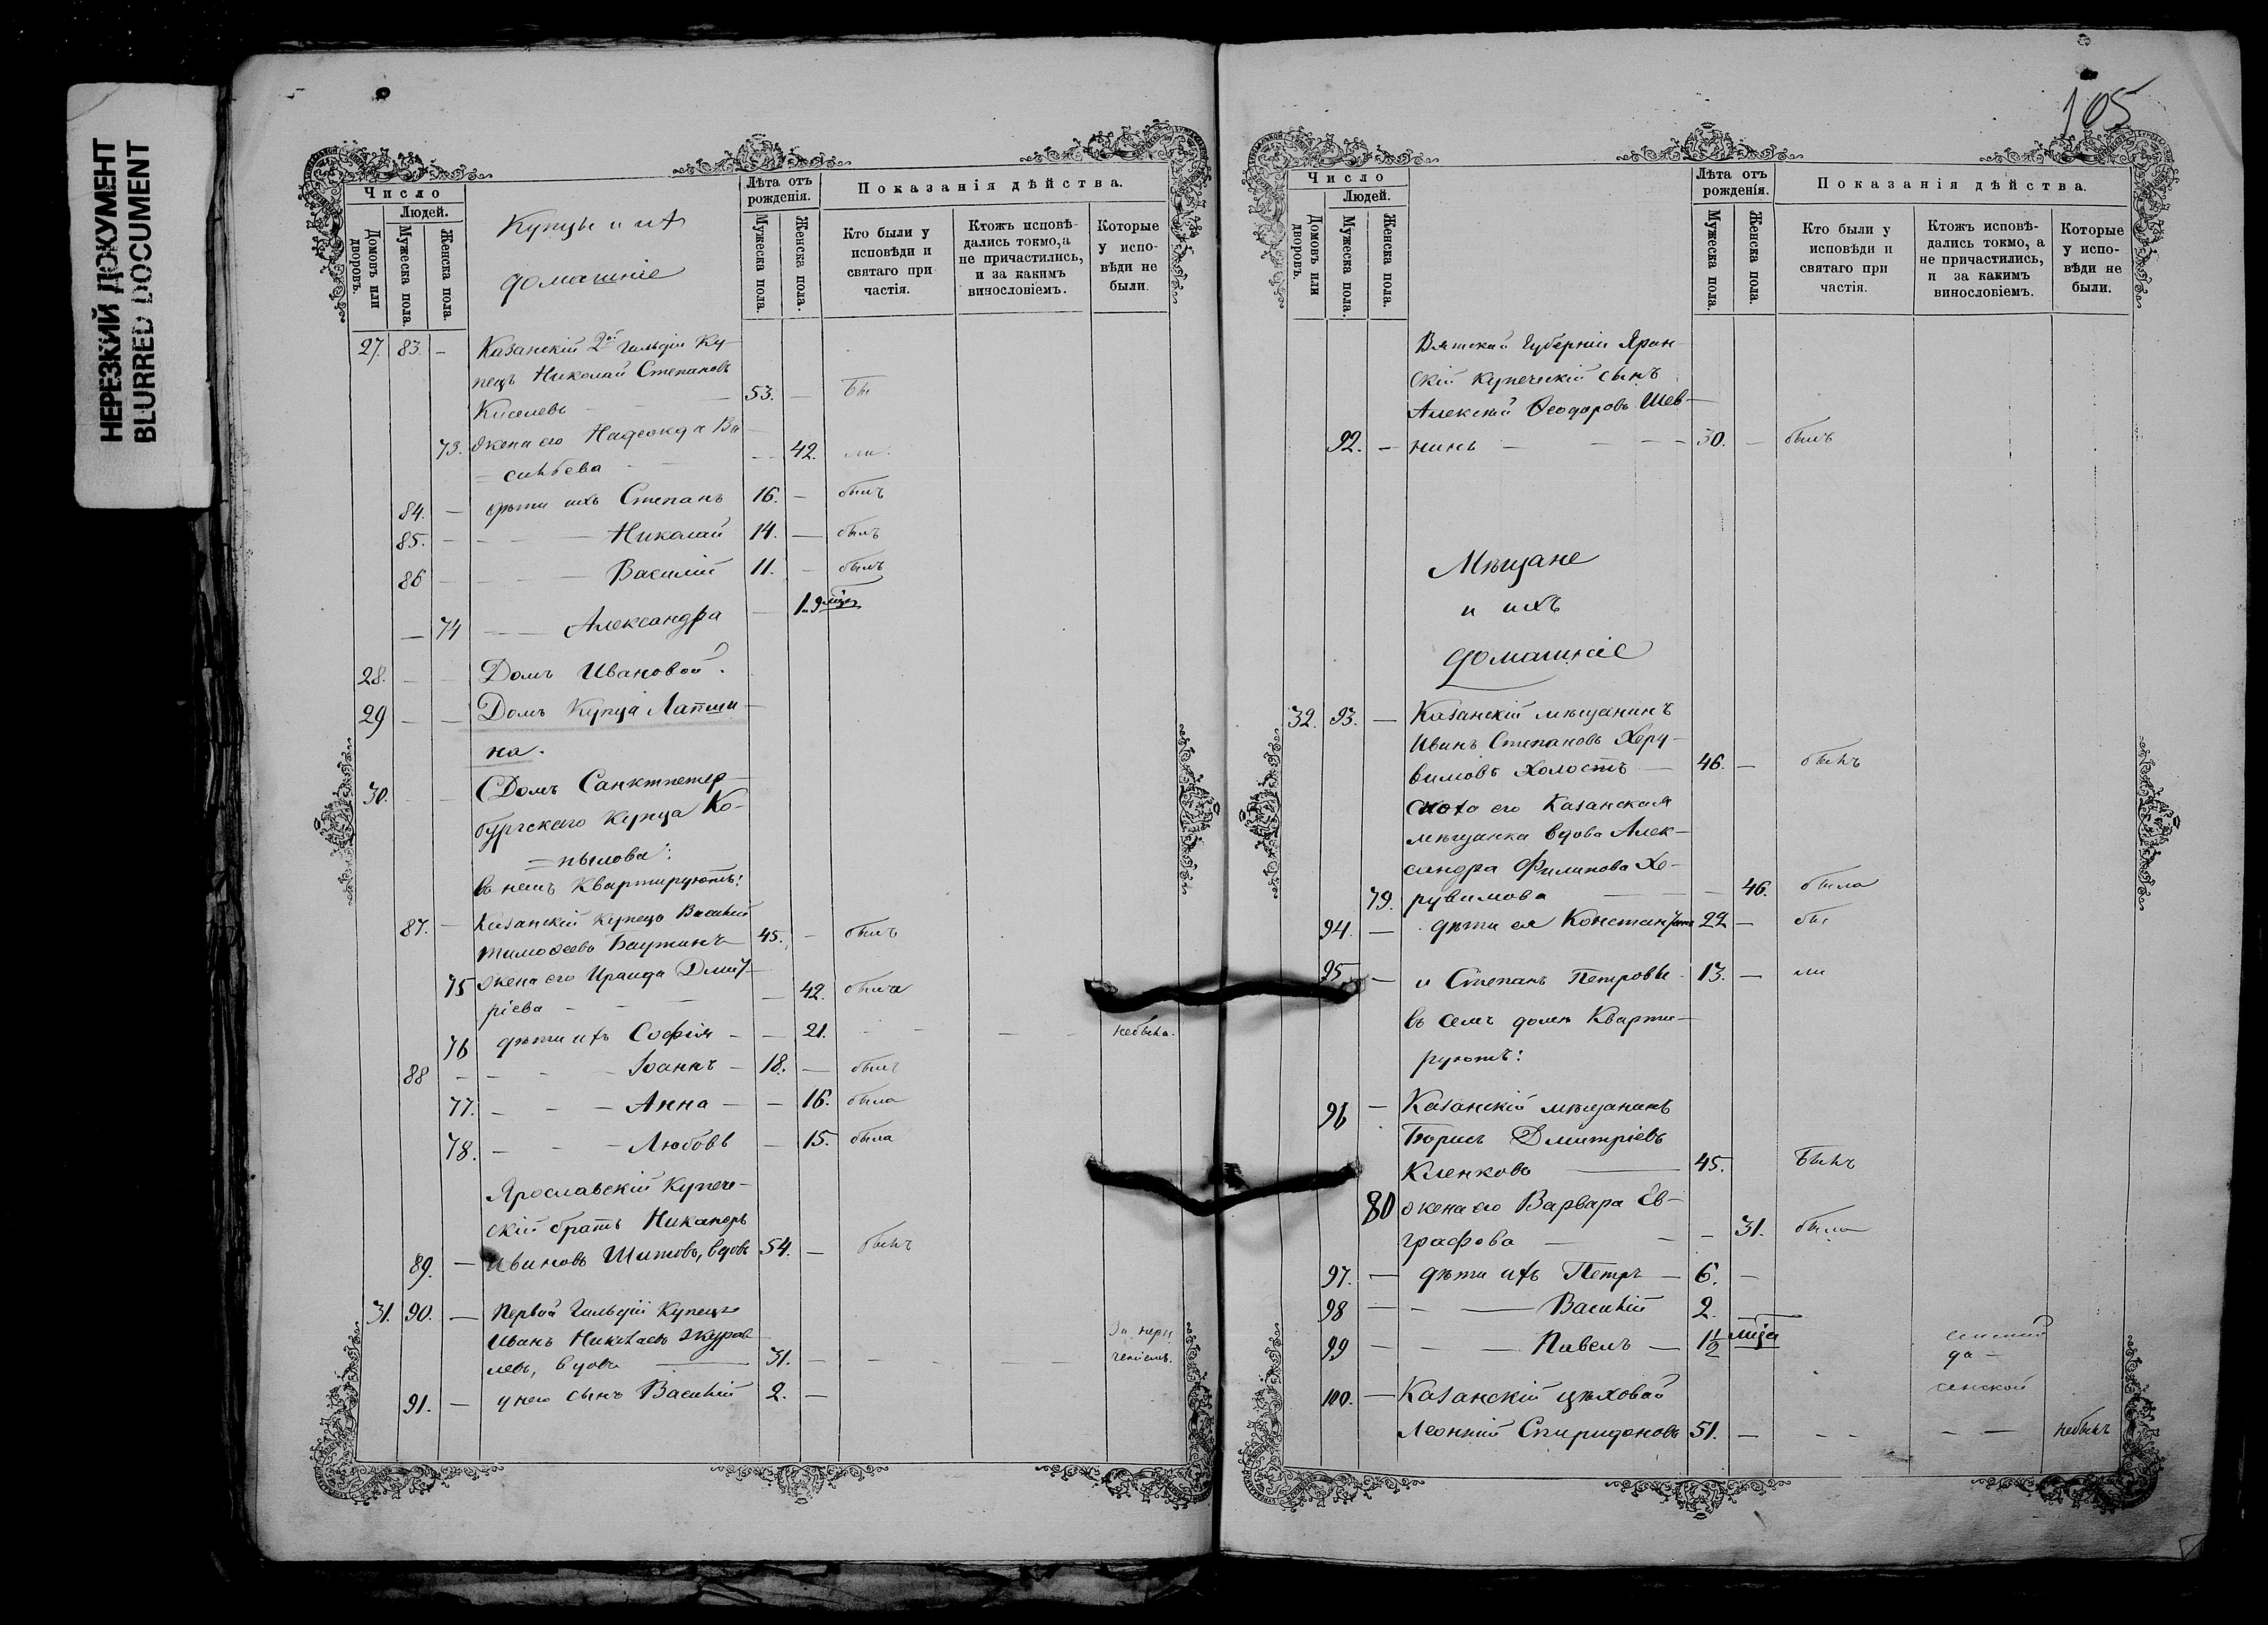 НЕРЕЗКИЙ ДОКУМЕНТ
BLURRED DOCUMENT
Число
Людей.
Домовъ или дворовъ.
Мужеска пола.
Женска пола.
Купцы и ихъ
домашніе
Лѣта отъ рожденія.
Мужеска пола.
Женска пола.
Показанія дѣйства.
Кто были у исповѣди и святаго при частія.
Ктожъ исповѣ- дались токмо, а не причастились, и за какимъ винословіемъ.
Которые у испо- вѣди не были.
27. 83. - Казанскій 2ой гильдіи Ку-
пецъ Николай Степановъ
Киселевъ - 53. - Бы
73. жена его Надежда Ва
сильева - 42. ли.
84. - дѣти ихъ Степанъ 16. - былъ
85. - Николай 14. - былъ
86 - Василій 11. - былъ
- 74 - Александра - 1 и 9 мѣц
28. - - Домъ Ивановой.
29 - - Домъ Купца Лапши-
на.
30. - - Домъ Санктпетер-
бургскаго Купца Ко-
пылова:
въ немъ квартируютъ:
87. - Казанскій купецъ Василій
Тимоѳеевъ Баутинъ 45. - былъ
75 жена его Ираида Дмит-
ріева - - 42. была
76 дѣти ихъ Софія - - 21. - - - - небыла.
88 - - - Іоаннъ - 18. - былъ
77. - - - Анна - - 16. была
78. - - - Любовь - 15. была
Ярославскій Купече-
скій братъ Никаноръ
89. - Ивановъ Шитовъ, вдовъ 54. - былъ
31. 90. - Первой Гильдіи Купецъ
Иванъ Николаевъ Журав-
левъ, вдовъ - 31. - - - - За нера
ченіемъ.
91. - у него сынъ Василій 2. -
105
Число
Людей.
Домовъ или дворовъ.
Мужеска пола.
Женска пола.
Лѣта отъ рожденія.
Мужеска пола.
Женска пола.
Показанія дѣйства.
Кто были у исповѣди и святаго при частія.
Ктожъ исповѣ- дались токмо, а не причастились, и за какимъ винословіемъ.
Которые у испо- вѣди не были.
Вятской Губерніи Яран-
скій купеческій сынъ
Алексѣй Ѳеодоровъ Шев-
92. - нинъ - - - - 30. - былъ
Мѣщане
и ихъ
домашніе
32. 93. - Казанскій мѣщанинъ
Иванъ Степановъ Херу-
вимовъ холостъ - 46. - былъ
сноха его Казанская
мѣщанка вдова Алек-
сандра Филипова Хе-
79. рувимова - - 46. была
94. - дѣти ея Константинъ 22 - бы
95. - и Степанъ Петровы 13. - ли
въ семъ домѣ Кварти-
руютъ:
96 - Казанскій мѣщанинъ
Борисъ Дмитріевъ
Кленковъ - 45. Былъ
80 жена его Варвара Ев-
графова - - - 31. была
97. - дѣти ихъ Петръ - 6. -
98 - - - Василій 2. -
99 - - - Павелъ - 1½ мѣца
100. - Казанскій цѣховой
Леонтій Спиридоновъ 51. - - - - - небылъ